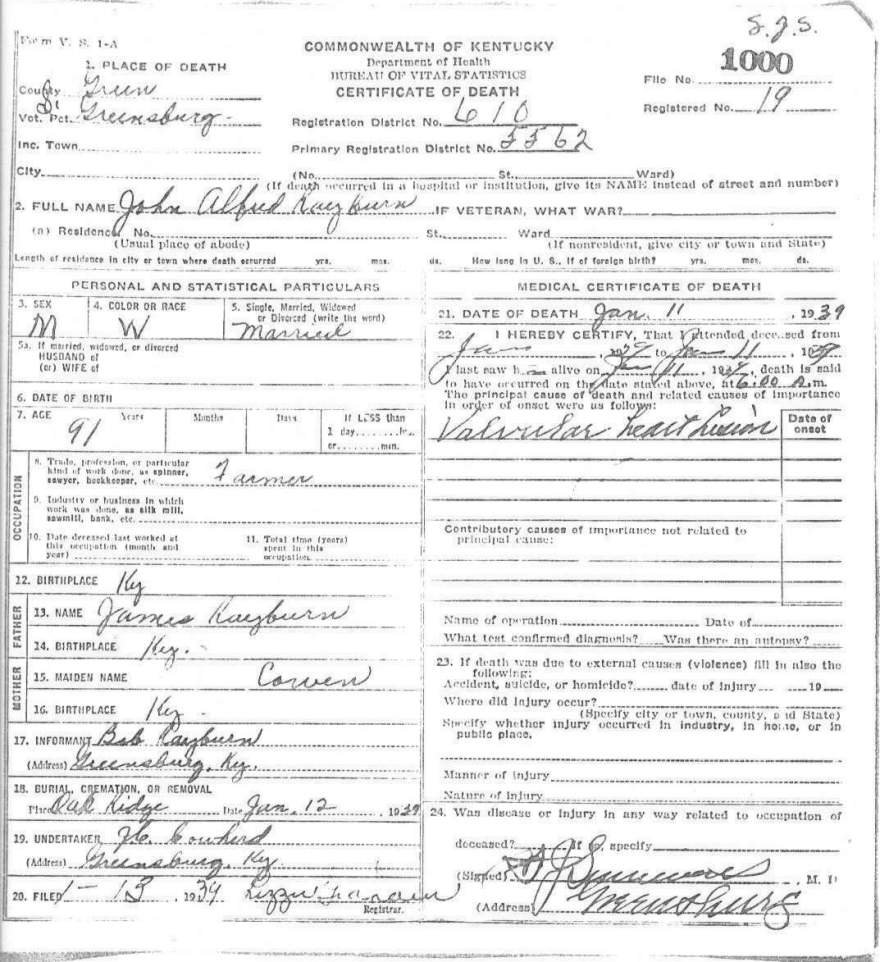 S.J.S.
Form V. S. 1-A
COMMONWEALTH OF KENTUCKY
Department of Health
BUREAU OF VITAL STATISTICS
CERTIFICATE OF DEATH
1000
File No.
Registered No. 19
1. PLACE OF DEATH
County Green
Vot. Pct. Greensburg
Registration District No. 610
Inc. Town
Primary Registration District No. 5562
City
(No. St. Ward)
(If death occurred in a hospital or institution, give its NAME instead of street and number)
2. FULL NAME John Alfred Rayburn IF VETERAN, WHAT WAR?
(a) Residence No. St. Ward
(Usual place of abode) (If nonresident, give city or town and State)
Length of residence in city or town where death occurred yrs. mos. ds. How long in U. S., if of foreign birth? yrs. mos. ds.
PERSONAL AND STATISTICAL PARTICULARS
3. SEX M
4. COLOR OR RACE W
5. Single, Married, Widowed or Divorced (write the word) Married
5a. If married, widowed, or divorced
HUSBAND of
(or) WIFE of
6. DATE OF BIRTH
7. AGE 91 Years Months Days If LESS than
1 day, hrs.
or min.
OCCUPATION
8. Trade, profession, or particular
kind of work done, as spinner,
sawyer, bookkeeper, etc. Farmer
9. Industry or business in which
work was done, as silk mill,
sawmill, bank, etc.
10. Date deceased last worked at
this occupation (month and
year)
11. Total time (years)
spent in this
occupation
12. BIRTHPLACE Ky
FATHER
13. NAME James Rayburn
14. BIRTHPLACE Ky.
MOTHER
15. MAIDEN NAME Corven
16. BIRTHPLACE Ky
17. INFORMANT Bob Rayburn
(Address) Greensburg, Ky.
18. BURIAL, CREMATION, OR REMOVAL
Place Oak Ridge Date Jan. 12 1939
19. UNDERTAKER Cowherd
(Address) Greensburg, Ky.
20. FILED 1-13, 1939 Lizzie
Registrar.
MEDICAL CERTIFICATE OF DEATH
21. DATE OF DEATH Jan. 11, 1939
22. I HEREBY CERTIFY, That I attended deceased from
Jan, 1939 to Jan 11, 1939
I last saw him alive on Jan 11, 1939, death is said
to have occurred on the date stated above, at 6:00 A.m.
The principal cause of death and related causes of importance
in order of onset were as follows:
Date of
onset
Valvular heart Lesion
Contributory causes of importance not related to
principal cause:
Name of operation Date of
What test confirmed diagnosis? Was there an autopsy?
23. If death was due to external causes (violence) fill in also the
following:
Accident, suicide, or homicide? date of injury 19
Where did injury occur?
(Specify city or town, county, and State)
Specify whether injury occurred in industry, in home, or in
public place.
Manner of injury
Nature of injury
24. Was disease or injury in any way related to occupation of
deceased? If so, specify
(Signed) M. D
(Address) Greensburg